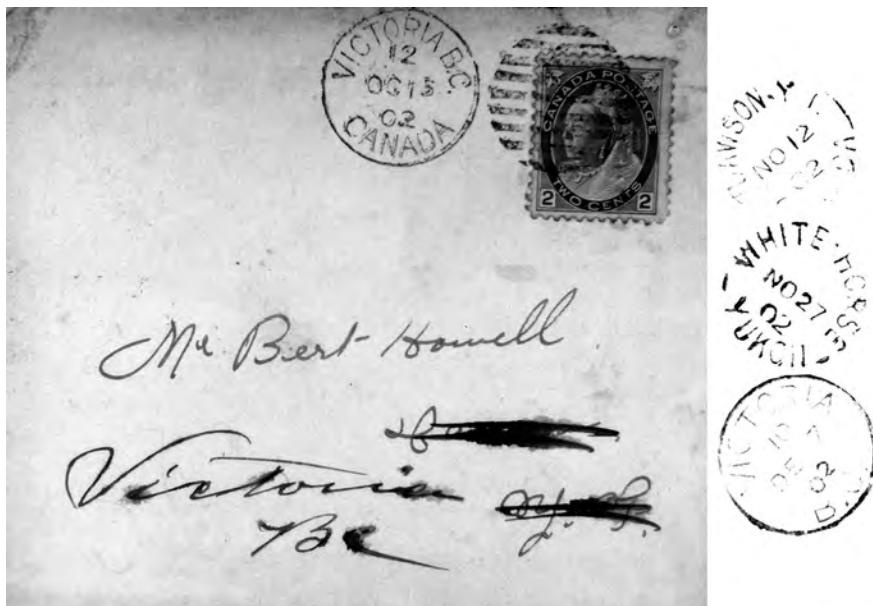 VICTORIA B.C.
12
OC 13
02
CANADA
CANADA POSTAGE
2 TWO CENTS 2
Mr Bert Howell
Victoria
BC
Y.T.
NO 12
02
WHITE HORSE
NO 27
02
YUKON
VICTORIA
DE 7
02
B.C.